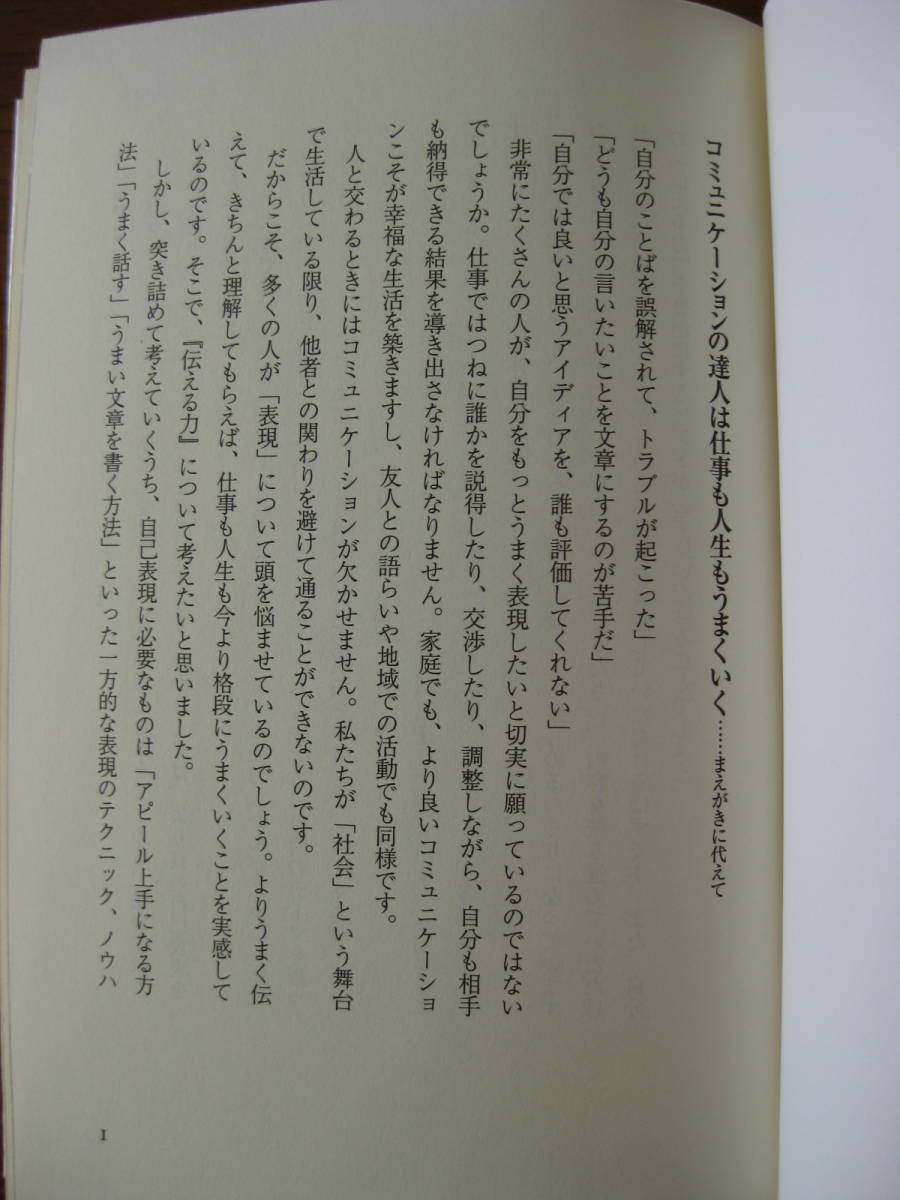 コミュニケーションの達人は仕事も人生もうまくいく……まえがきに代えて
「自分のことばを誤解されて、トラブルが起こった」
「どうも自分の言いたいことを文章にするのが苦手だ」
「自分では良いと思うアイディアを、誰も評価してくれない」
非常にたくさんの人が、自分をもっとうまく表現したいと切実に願っているのではない
でしょうか。仕事ではつねに誰かを説得したり、交渉したり、調整しながら、自分も相手
も納得できる結果を導き出さなければなりません。家庭でも、より良いコミュニケーショ
ンこそが幸福な生活を築きますし、友人との語らいや地域での活動でも同様です。
人と交わるときにはコミュニケーションが欠かせません。私たちが「社会」という舞台
で生活している限り、他者との関わりを避けて通ることができないのです。
だからこそ、多くの人が「表現」について頭を悩ませているのでしょう。よりうまく伝
えて、きちんと理解してもらえば、仕事も人生も今より格段にうまくいくことを実感して
いるのです。そこで、『伝える力』について考えたいと思いました。
しかし、突き詰めて考えていくうち、自己表現に必要なものは「アピール上手になる方
法」「うまく話す」「うまい文章を書く方法」といった一方的な表現のテクニック、ノウハ
1